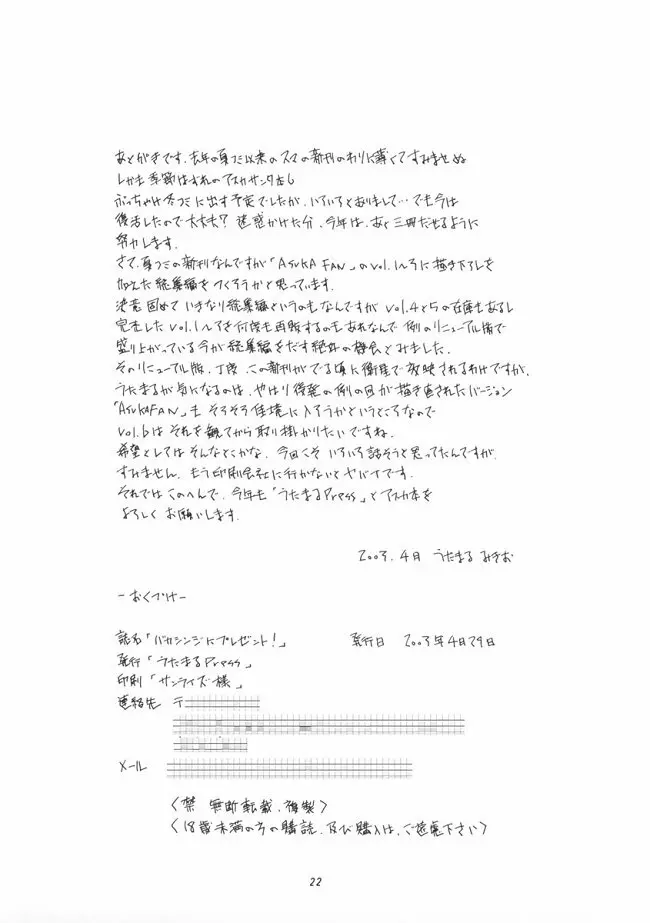 あとがきです。去年の夏コミ以来のアスカの新刊のわりに薄くてすみませぬ
しかも季節はずれのアスカサンタ本し
ぶっちゃけ冬コミに出す予定でしたが、いろいろとありまして…でも今は
復活したので大丈夫？ 迷惑かけた分、今年は、あと三冊だせるように
努力します。
さて、夏コミの新刊なんですが「ASUKA FAN」のvol.1〜3に描き下ろしを
加えた総集編をつくろうかと思っています。
決意固めていきなり総集編というのもなんですが vol.4と5の在庫もあるし
完売したvol.1〜3を何度も再販するのもあれなんで 例のリニューアル版で
盛り上がっている今が総集編をだす絶好の機会とみました。
そのリニューアル版、丁度、この新刊がでる頃に衛星で放映されるわけですが、
うたまるが気になるのは、やはり後発の例の回が描き直されたバージョン
「ASUKAFAN」も そろそろ佳境に入ろうかというところなので
vol.6は それを観てから取り掛かりたいですね。
希望としてはそんなとこかな、今回こそ いろいろ話そうと思ってたんですが、
すみません、もう印刷会社に行かないとヤバイです。
それではこのへんで、今年も「うたまるPress」とアスカ本を
よろしく お願いします。
2003. 4月 うたまる みきお
－おくづけ－
誌名「バカシンジにプレゼント！」 発行日 2003年4月29日
発行「うたまるPress」
印刷「サンライズ様」
連絡先 〒
メール
〈禁 無断転載、複製〉
〈18歳未満の方の購読、及び購入は、ご遠慮下さい〉
22